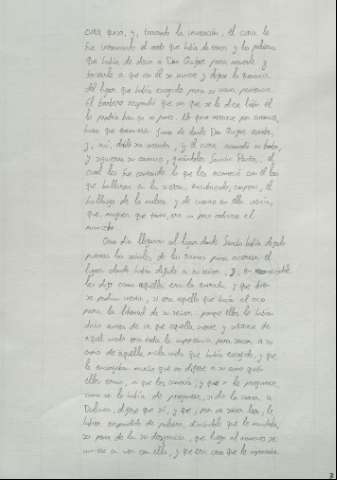 cura quiso, y, trocando la invención, el cura le
fue informando el modo que había de tener y las palabras
que había de decir a Don Quijote para moverle y
forzarle a que con él se viniese y dejase la querencia
del lugar que había escogido para su vana penitencia.
El barbero respondió que sin que se le diese lición él
lo pondría bien en su punto. No quiso vestirse por entonces,
hasta que estuviesen junto de donde Don Quijote estaba,
y, así, dobló sus vestidos, y el cura acomodó su barba,
y siguieron su camino, guiándolos Sancho Panza, el
cual les fue contando lo que les aconteció con el loco
que hallaron en la sierra, encubriendo, empero, el
hallazgo de la maleta y de cuanto en ella venía,
que, maguer que tonto, era un poco codicioso el
mancebo.
Otro día llegaron al lugar donde Sancho había dejado
puestas las señales de las ramas para acertar el
lugar donde había dejado a su señor, y, en reconociéndole
les dijo como aquella era la entrada y que bien
se podían vestir, si era aquello que hacía al caso
para la libertad de su señor: porque ellos le habían
dicho antes de que aquella noche y vestirse de
aquel modo era toda la importancia para sacar a su
amo de aquella mala vida que había escogido, y que
le encargaban mucho que no dijese a su amo quién
ellos eran, ni que los conocía; y que si le preguntase,
como se lo había de preguntar, si dio la carta a
Dulcinea, dijese que sí, y que, por no saber leer, le
había respondido de palabra, diciéndole que le mandaba,
so pena de la su desgracia, que luego al momento se
viniese a ver con ella, y que era cosa que le importaba